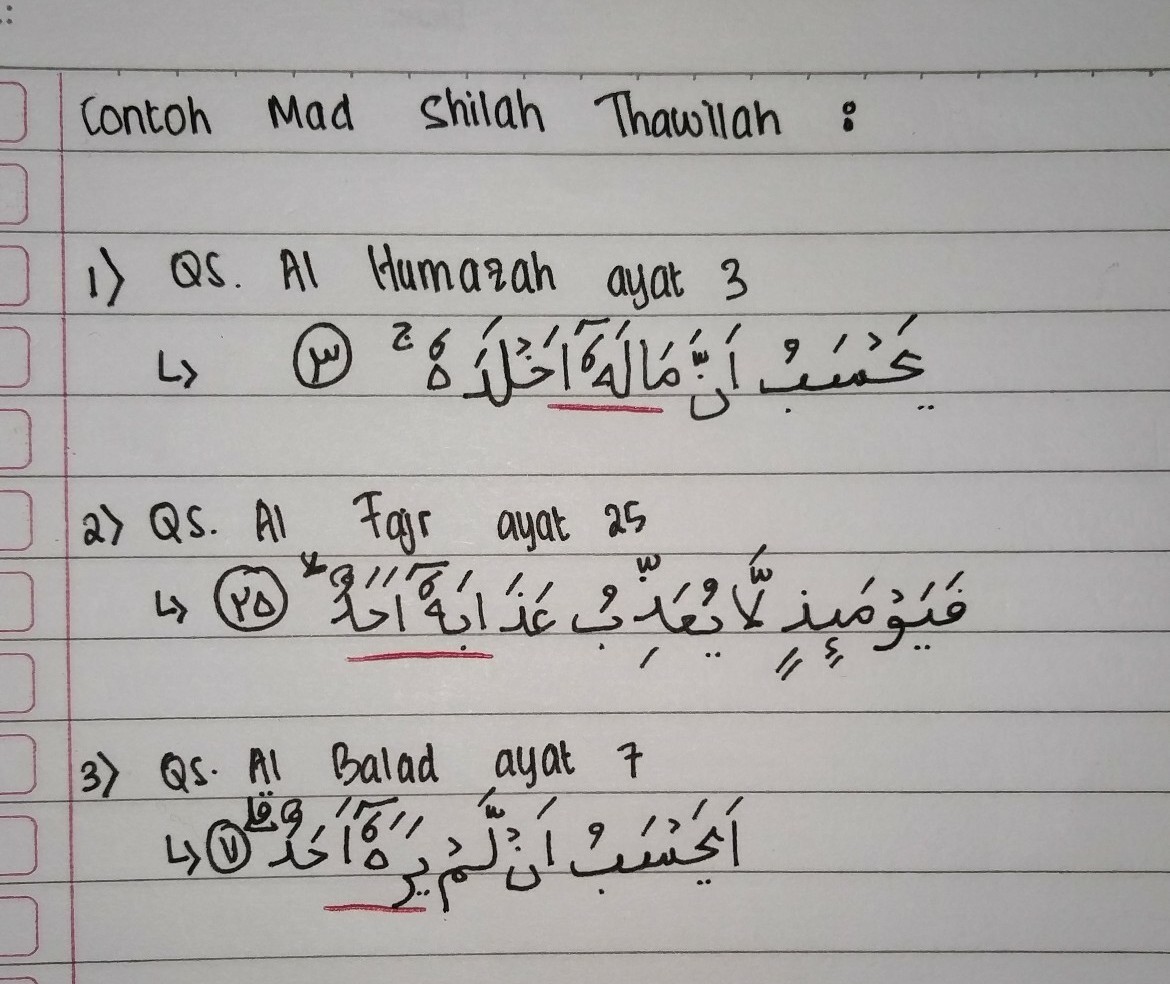 Contoh Mad Shilah Thawillah :
1) QS. Al Humazah ayat 3
↳ يَحْسَبُ اَنَّ مَالَهٗٓ اَخْلَدَهٗ ۚ ٣
2) QS. Al Fajr ayat 25
↳ فَيَوْمَىِٕذٍ لَّا يُعَذِّبُ عَذَابَهٗٓ اَحَدٌ ۙ ٢٥
3) QS. Al Balad ayat 7
↳ اَيَحْسَبُ اَنْ لَّمْ يَرَهٗٓ اَحَدٌ ۗ ٧